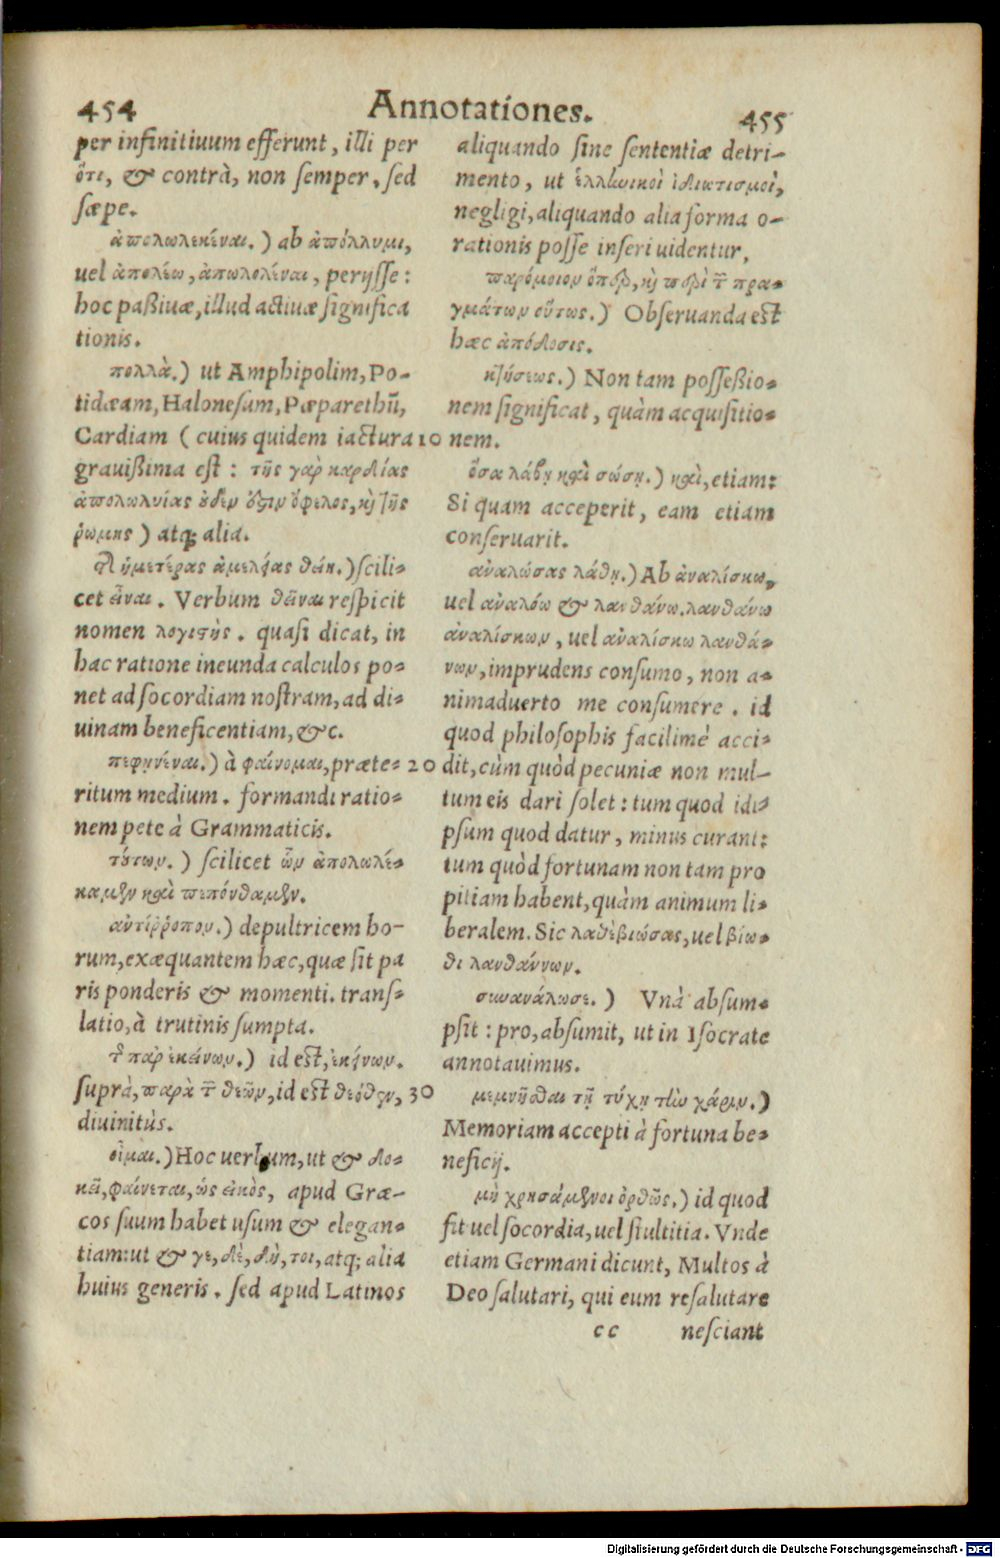 454 Annotationes. 455
per infinitiuum efferunt, illi per
ὅτι, & contrà, non semper, sed
sæpe.
ἀπολωλεκέναι.) ab ἀπόλλυμι,
uel ἀπολέω, ἀπωλολέναι, perijsse:
hoc paßiuæ, illud actiuæ significa
tionis.
πολλὰ.) ut Amphipolim, Po-
tidæam, Halonesum, Pæparethū,
Cardiam (cuius quidem iactura 10
grauißima est: τῆς γαρ καρδίας
ἀπολωλυίας ȣ̓δεν ὄϛιν ὄφελος, κὶ τῆς
ῥωμης) atq; alia.
τ ἡμετέρας ἀμελείας θείη.) scili-
cet εἶναι. Verbum θεῖναι respicit
nomen λογιϛὴς. quasi dicat, in
hac ratione ineunda calculos po-
net ad socordiam nostram, ad di-
uinam beneficentiam, &c.
πεφηνέναι.) à φαίνομαι, præte- 20
ritum medium. formandi ratio-
nem pete à Grammaticis.
τȣ́των.) scilicet ὧν ἀπολωλέ-
καμεν καὶ πεπόνθαμεν.
αντίῤῥοπον.) depultricem ho-
rum, exæquantem hæc, quæ sit pa
ris ponderis & momenti. trans-
latio, à trutinis sumpta.
τ παρ ἐκείνων.) id est, ἐκείνων.
suprà, παρὰ τ θεῶν, id est θεόθεν, 30
diuinitùs.
οἶμαι.) Hoc uerbum, ut & δο-
κεῖ, φαίνεται, ὡς εἰκὸς, apud Græ-
cos suum habet usum & elegan-
tiam: ut & γε, δὲ, δὴ, τοι, atq; alia
huius generis. sed apud Latinos
aliquando sine sententiæ detri-
mento, ut ἑλλωικοὶ ἰδιωτισμοὶ,
negligi, aliquando alia forma o-
rationis posse inseri uidentur.
παρόμοιον ὅπερ, κὶ περὶ τ πρα-
γμάτων οὕτως.) Obseruanda est
hæc ἀπόδοσις.
κτήσεως.) Non tam posseßio-
nem significat, quàm acquisitio-
nem.
ὅσα λάβῃ καὶ σώσῃ.) καὶ, etiam:
Si quam acceperit, eam etiam
conseruarit.
αναλώσας λάθῃ.) Ab ἀναλίσκω,
uel αναλόω & λανθάνω. λανθάνω
ἀναλίσκων, uel αναλίσκω λανθά-
νων, imprudens consumo, non a-
nimaduerto me consumere. id
quod philosophis facilimè acci-
dit, cùm quòd pecuniæ non mul-
tum eis dari solet: tum quod id i-
psum quod datur, minus curant:
tum quòd fortunam non tam pro
pitiam habent, quàm animum li-
beralem. Sic λαθὲ βιώσας, uel βίω-
θι λανθάνων.
συνανάλωσε.) Vnà absum-
psit: pro, absumit, ut in Isocrate
annotauimus.
μεμνῆσθαι τῇ τύχῃ τὼ χάριν.)
Memoriam accepti à fortuna be-
neficij.
μὴ χρησάμενοι ὀρθῶς.) id quod
fit uel socordia, uel stultitia. Vnde
etiam Germani dicunt, Multos à
Deo salutari, qui eum resalutare
cc nesciant
Digitalisierung gefördert durch die Deutsche Forschungsgemeinschaft - DFG